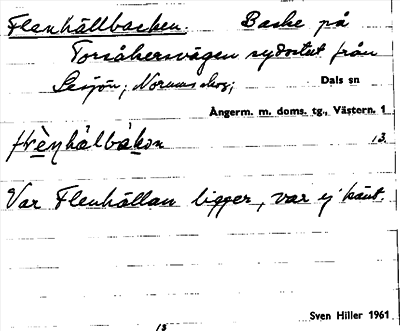 Flenhällbacken. Backe på
Torsåkersvägen sydostut från
Sesjön; Norums skog;
Dals sn
Ångerm. m. doms. tg., Västern. 1
13.
Var Flenhällan ligger, var ej känt.
Sven Hiller 1961
15